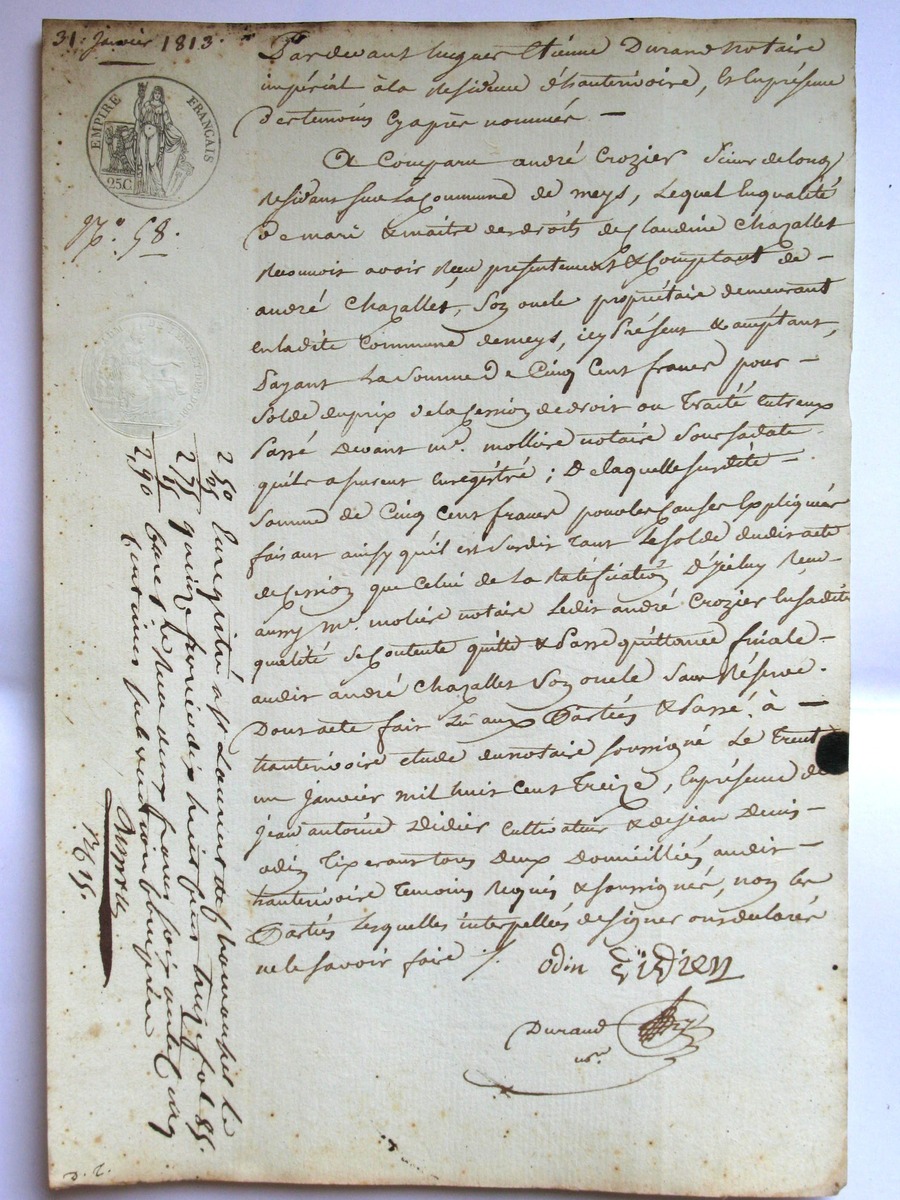 31. Janvier 1813.
EMPIRE FRANÇAIS
25C
N.o 58.
Pardevant hugues Etienne Durand Notaire
impérial à la Residence d'hauterivoire, Et En présence
Des temoins Cy après nommés —
A Comparu andré Crozier Scieur de long
Residant sur La Commune de meys, Lequel En qualité
De mari & maitre des droits de Claudine Chazallet
Reconnoit avoir Recu présentement & Comptant de —
andré Chazallet, Son oncle propriétaire demeurant
en ladite Commune de meys, icy Présent & acceptant,
Payant La Somme De Cinq Cent francs pour —
Solde du prix de la Cession de droit ou Traité Entreux
Passé Devant me. molliere notaire Sous Sa date
qu'ils assurent Enregistré; De laquelle susdite —
Somme de Cinq Cent francs pour les Causes Expliquées
faisant ainsy qu'il est Susdit Tant Le Solde dudit acte
de Cession que Celui de La Ratification D'icelui Recu
aussy Me. moliere notaire Ledit andré Crozier En sadite
qualité Se Contente quitte & Passe quittance finale —
audit andré Chazallet Son oncle Sans Réserve.
Dont acte fait Lu aux Parties & Passé à —
hauterivoire étude du notaire Soussigné Le Trente
un Janvier mil huit Cent Treize, En présence de
Jean antoine Didier Cultivateur & de Jean Denis —
odin Tixerant tous Deux Domiciliés audit —
hauterivoire Temoins Requis & Soussignés, non les
Parties Lesquelles interpellées de signer ont declaré
ne le Savoir faire ./.
odin Didier
Durand
nore.
2 50 Enregistré à St Laurent de Chamousset le
25 quinze fevrier dix huit cent treize fol 85.
2 75
15 Case 1 Recu deux francs soixante Cinq
2,90 Centimes subvention Comprise
D. L.